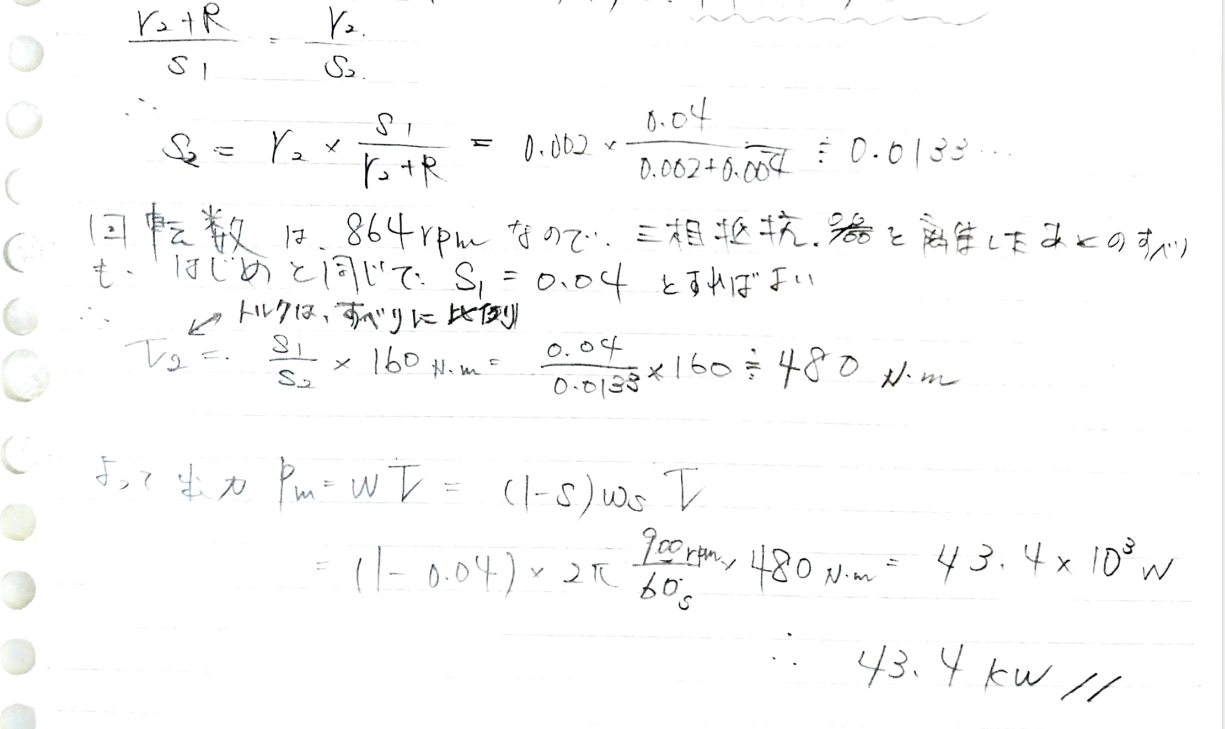 (r₂+R)/S₁ = r₂/S₂.
∴
S₂ = r₂ × S₁/(r₂+R) = 0.002 × 0.04/(0.002+0.004) ≒ 0.0133…
回転数は、864rpmなので、三相抵抗器と離準したあとのすべり
も、はじめと同じで、S₁ = 0.04 とすればよい
∴ トルクは、すべりに比例
T₂ = S₁/S₂ × 160 N·m = 0.04/0.0133 × 160 ≒ 480 N·m
よって出力 Pm = ωT = (1-S)ωs T
= (1-0.04) × 2π 900rpm/60s × 480 N·m = 43.4 × 10³ W
∴ 43.4 kW //